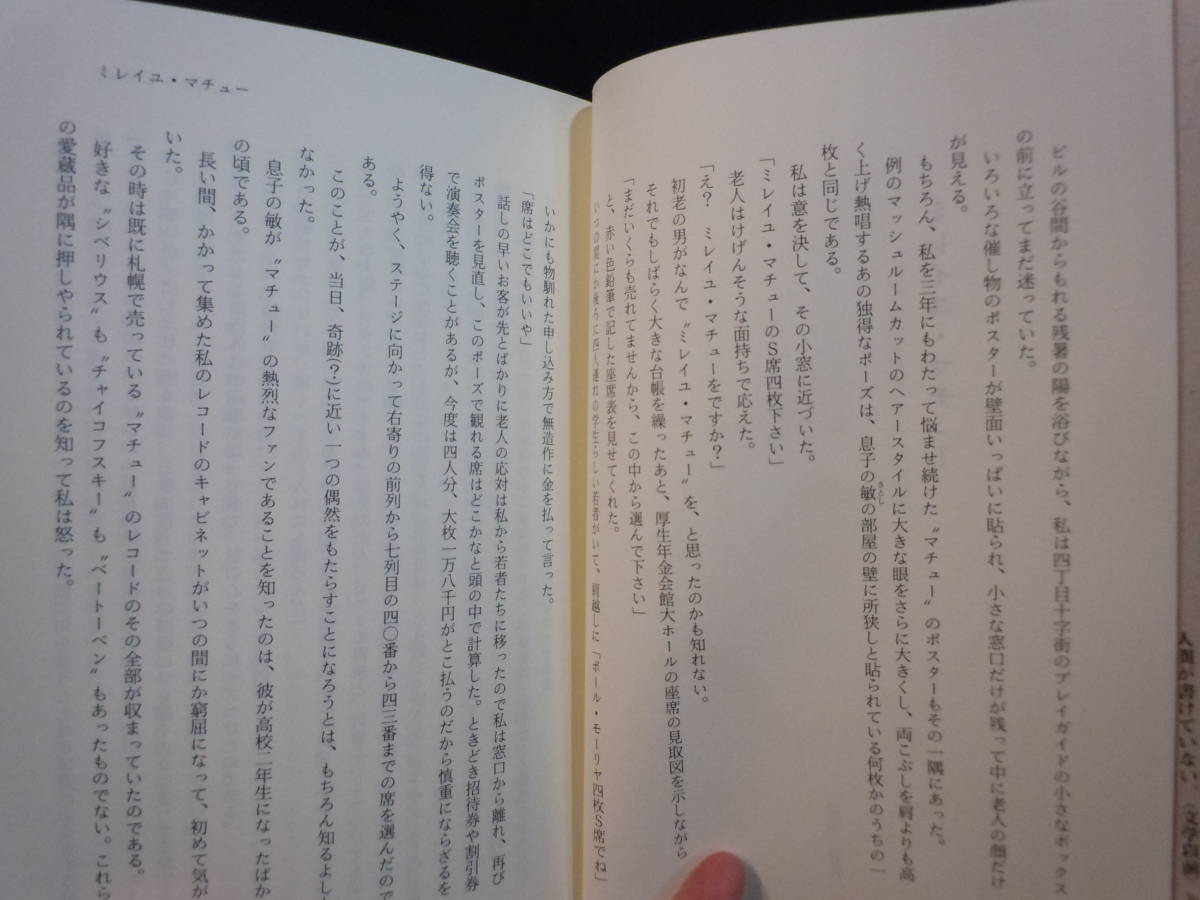 ビルの谷間からもれる残暑の陽を浴びながら、私は四丁目十字街のプレイガイドの小さなボックス
の前に立ってまだ迷っていた。
いろいろな催し物のポスターが壁面いっぱいに貼られ、小さな窓口だけが残って中に老人の顔だけ
が見える。
もちろん、私を三年にもわたって悩ませ続けた〝マチュー〟のポスターもその一隅にあった。
例のマッシュルームカットのヘアースタイルに大きな眼をさらに大きくし、両こぶしを肩よりも高
く上げ熱唱するあの独得なポーズは、息子の敏の部屋の壁に所狭しと貼られている何枚かのうちの一
枚と同じである。
私は意を決して、その小窓に近づいた。
「ミレイユ・マチューのS席四枚下さい」
老人はけげんそうな面持ちで応えた。
「え？ ミレイユ・マチューをですか？」
初老の男がなんで〝ミレイユ・マチュー〟を、と思ったのかも知れない。
それでもしばらく大きな台帳を繰ったあと、厚生年金会館大ホールの座席の見取図を示しながら
「まだいくらも売れてませんから、この中から選んで下さい」
と、赤い色鉛筆で記した座席表を見せてくれた。
いつの間にか後ろに四人連れの学生らしい若者がいて、肩越しに「ポール・モーリヤ四枚S席でね」
ミレイユ・マチュー
いかにも物馴れた申し込み方で無造作に金を払って言った。
「席はどこでもいいや」
話しの早いお客が先とばかりに老人の応対は私から若者たちに移ったので私は窓口から離れ、再び
ポスターを見直し、このポーズで観れる席はどこかなと頭の中で計算した。ときどき招待券や割引券
で演奏会を聴くことがあるが、今度は四人分、大枚一万八千円がとこ払うのだから慎重にならざるを
得ない。
ようやく、ステージに向かって右寄りの前列から七列目の四〇番から四三番までの席を選んだので
ある。
このことが、当日、奇跡（？）に近い一つの偶然をもたらすことになろうとは、もちろん知るよし
なかった。
息子の敏が〝マチュー〟の熱烈なファンであることを知ったのは、彼が高校二年生になったばか
の頃である。
長い間、かかって集めた私のレコードのキャビネットがいつの間にか窮屈になって、初めて気が
いた。
その時は既に札幌で売っている〝マチュー〟のレコードのその全部が収まっていたのである。
好きな〝シベリウス〟も〝チャイコフスキー〟も〝ベートーベン〟もあったものでない。これら
の愛蔵品が隅に押しやられているのを知って私は怒った。